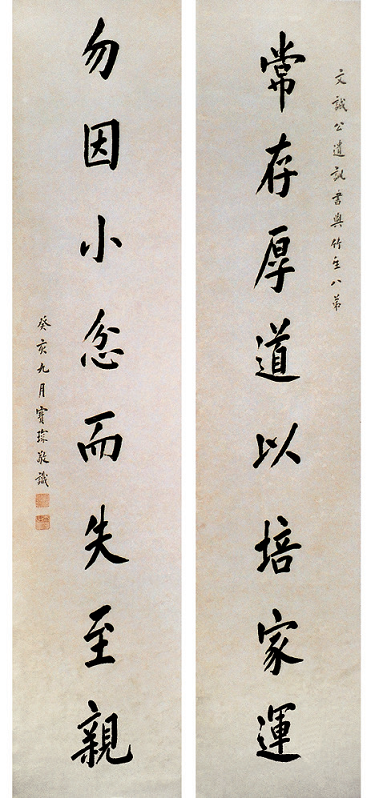 文誠公遺訓書與竹全八弟
常存厚道以培家運
勿因小忿而失至親
癸亥九月寶琛敬識